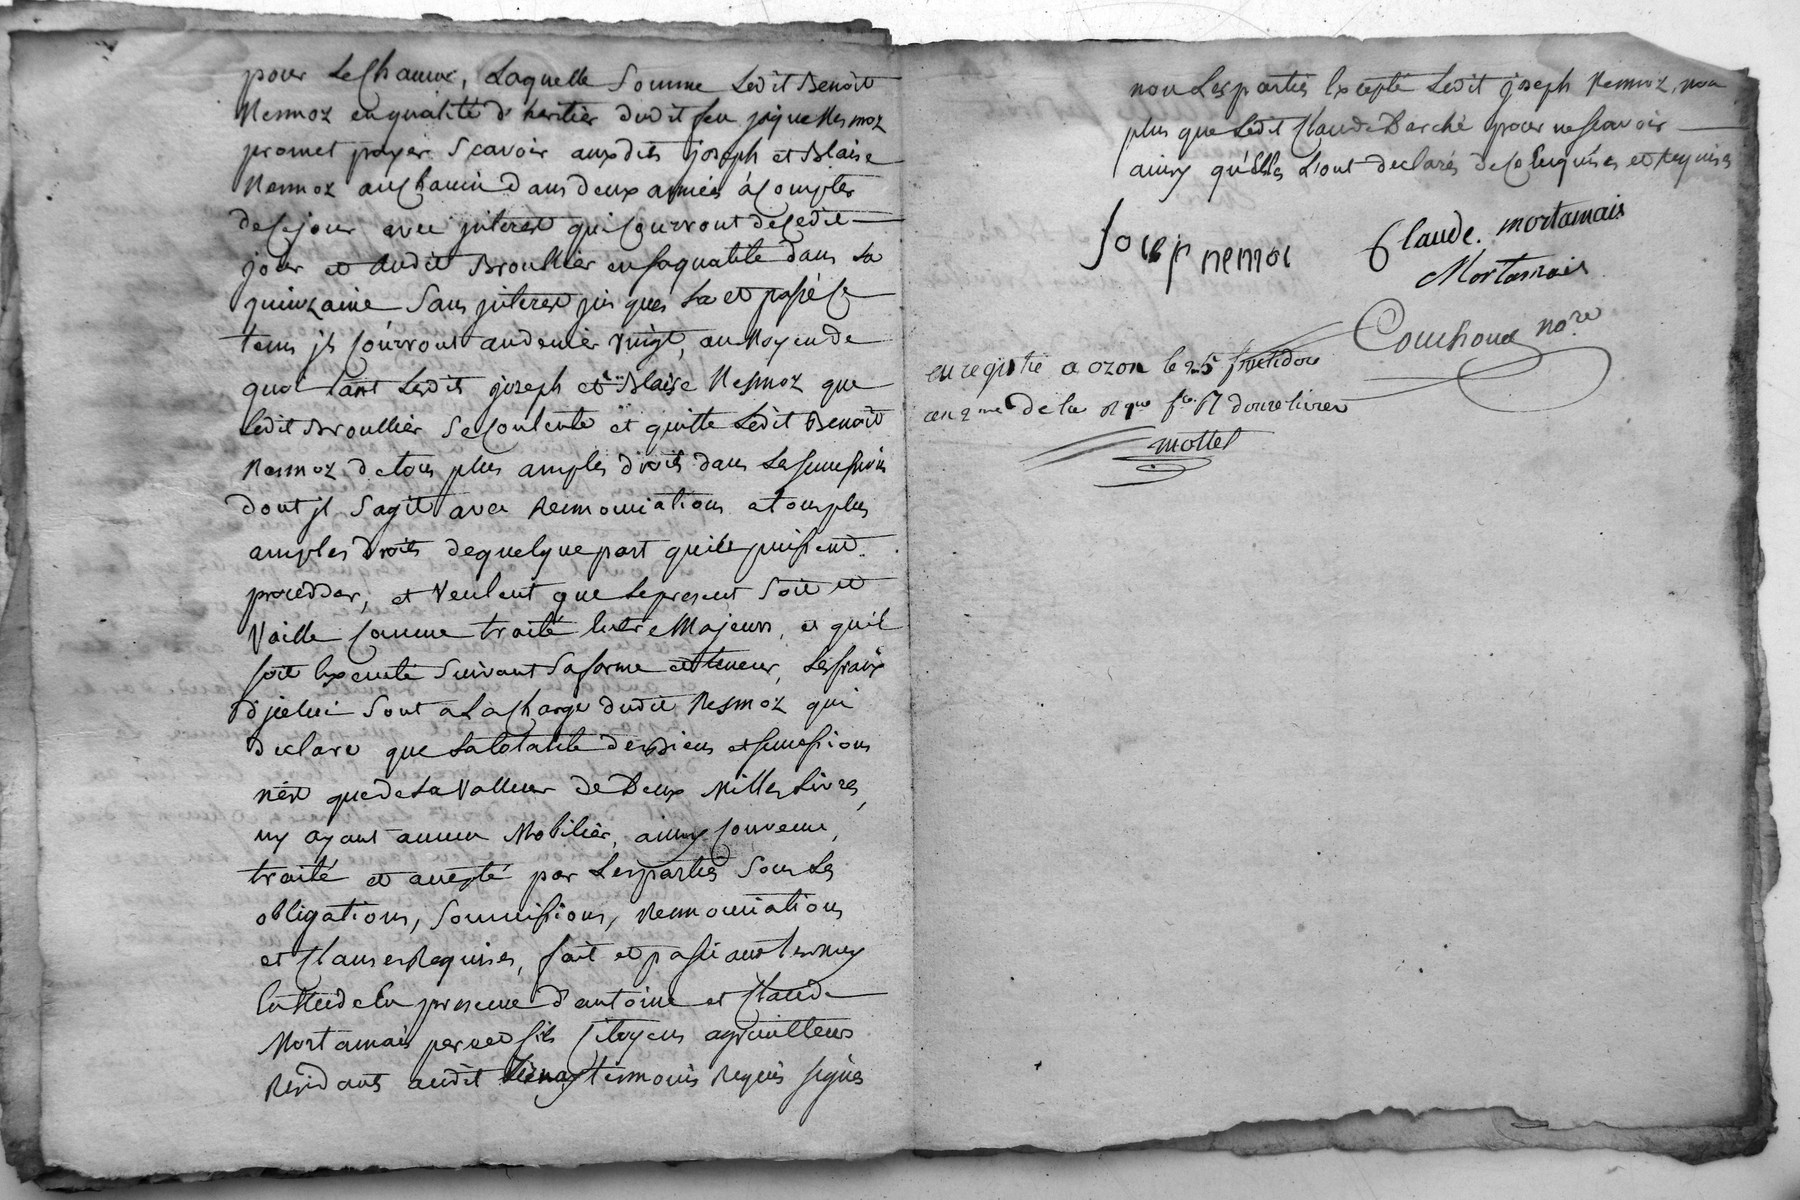 pour le Chacun, Laquelle Somme Ledit Benoît
Nesmoz en qualité d'heritier dudit feu jâque Nesmoz
promet payer Scavoir auxdits joseph et Blaise
Nesmoz au Chacun dans deux années à Compter
de Ce jour avec jnterest qui Courront de Cedit
jour et Audit Broullier en Saqualité dans La
quinzaine Sans jnterest jus ques La et passé Ce
tems jls Courront audenier vingt, au Moyen de
quoi tant Ledit joseph et Blaise Nesmoz que
Ledit Broullier Se Contente et quitte Ledit Benoît
Nesmoz de tous plus amples droits dans Les successions
dont jl Sagit avec Rennonciations a tous plus
amples droits de quelque part quils puissent
proceder, et Veulent que Le present Soit et
Vaille Comme traité Entre Majeurs, et quil
soit Executé Suivant Sa forme et teneur, Les fraix
d'jcelui Sont a La Charge dudit Nesmoz qui
declare que La totalité des Biens et successions
n'est que de La Valleur de Deux Milles Livres,
ny ayant aucun Mobilièr, ainsy Convenu,
traité et accepté par Les parties Sous Les
obligations, Soumissions, Rennonciations
et Clauses Requises, fait et passé aux ternay
En Etude En presence d'antoine et Claude
Mortamais pere et fils Citoyens agriculteurs
Residants audit ternay temoins Requis signés
non Les parties Excepté Ledit joseph Nesmoz, non
plus que Ledit Claude Darché pour ne Scavoir
ainsy qu'Elles L'ont declarés de Ce Enquises et Requises
Josep nemoz
Claude. mortamais
Mortamais
Couchoud no.re
enregistré a ozon le 25 fructidor
an 2me de la Rque fse R douze livres
mottet